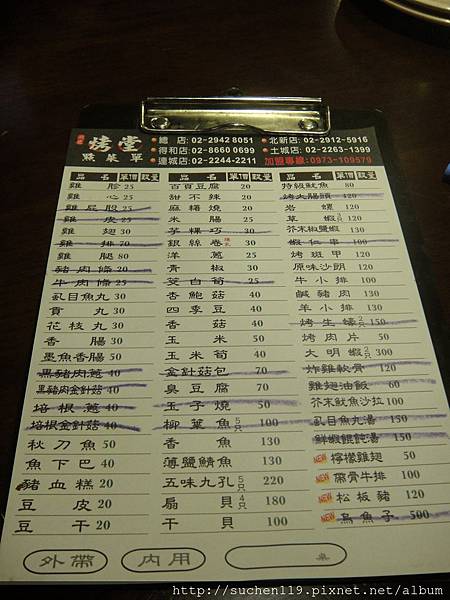 烤堂
點菜單
總 店:02-2942 8051
北新店:02-2912-5916
得和店:02-8660 0699
土城店:02-2263-1399
連城店:02-2244-2211
加盟專線:0973-109579
品 名 單價 數量
雞 胗 25
雞 心 25
雞屁股 25
雞 皮 25
雞 翅 30
雞 排 70
雞 腿 80
豬肉條 20
牛肉條 25
虱目魚丸 30
貢 丸 30
花枝丸 30
香 腸 30
墨魚香腸 50
黑豬肉蔥 40
黑豬肉金針菇 40
培根蔥 40
培根金針菇 40
秋刀魚 50
魚下巴 40
豬血糕 20
豆 皮 20
豆 干 20
品 名 單價 數量
百頁豆腐 20
甜不辣 20
麻糬燒 20
米 腸 20
芋粿巧 30
銀絲卷 30
洋 蔥 25
青 椒 30
茭白筍 25
杏鮑菇 40
四季豆 40
香 菇 40
玉 米 50
玉米筍 40
金針菇包 70
臭豆腐 70
玉子燒 50
柳葉魚 5只 100
香 魚 130
薄鹽鯖魚 130
五味九孔 5只 220
扇 貝 4只 180
干 貝 100
品 名 單價 數量
特級魷魚 80
烤大腸頭 120
岩 螺 120
草 蝦 2只 120
芥末椒鹽蝦 130
蝦仁串 100
烤斑甲 120
原味沙朗 120
牛小排 100
鹹豬肉 130
羊小排 100
烤生蠔 2只 150
烤肉片 50
大明蝦 2只 300
炸雞軟骨 120
雞翅油飯 60
芥末魷魚沙拉 100
虱目魚丸湯 150
鮮蝦餛飩湯 150
NEW 檸檬雞翅 50
NEW 帶骨牛排 100
NEW 松板豬 120
NEW 烏魚子 500
外帶
內用
桌
http://suchen119.pixnet.net/album